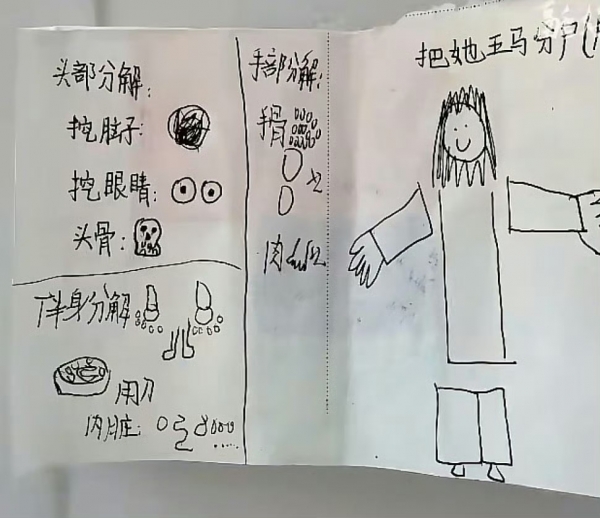 头部分解:
挖脑子:
挖眼睛
头骨:
下半身分解
用刀
内脏:
手部分解:
手骨
肉
把她五马分尸